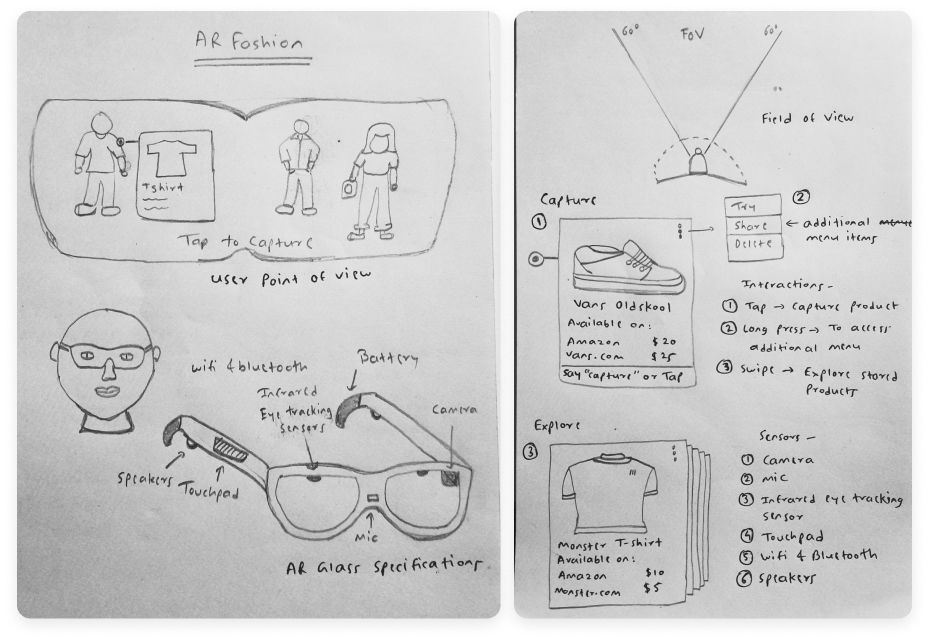 AR Fashion
Tshirt
Tap to Capture
User Point of View
wifi & bluetooth
Battery
Infrared
Eye tracking
sensors
Camera
Speakers
Touchpad
Mic
AR Glass Specifications
60°
FOV
60°
Field of View
Capture
①
②
Try
Share
Delete
← additional
menu items
Vans Oldskool
Available on:
Amazon $20
Vans.com $25
Say "capture" or Tap
Interactions -
① Tap → Capture product
② Long press → To access
additional menu
③ Swipe → Explore stored
Products
Explore
③
Monster T-shirt
Available on:
Amazon $10
Monster.com $5
Sensors -
① Camera
② Mic
③ Infrared eye tracking
sensor
④ Touchpad
⑤ Wifi & Bluetooth
⑥ Speakers